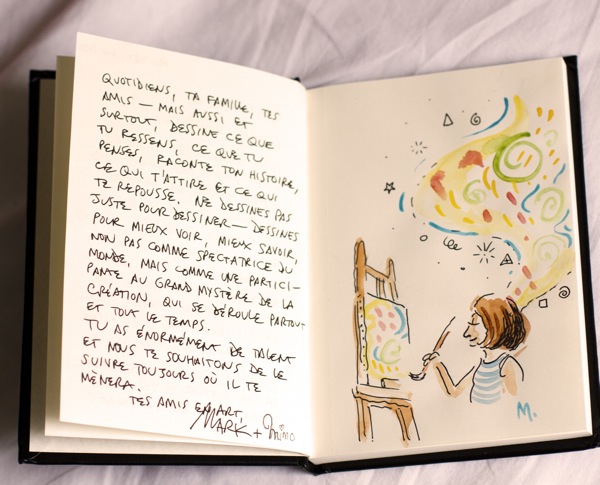 QUOTIDIENS, TA FAMILLE, TES
AMIS — MAIS AUSSI ET
SURTOUT, DESSINE CE QUE
TU RESSENS, CE QUE TU
PENSES, RACONTE TON HISTOIRE,
CE QUI T'ATTIRE ET CE QUI
TE REPOUSSE. NE DESSINES PAS
JUSTE POUR DESSINER — DESSINES
POUR MIEUX VOIR, MIEUX SAVOIR,
NON PAS COMME SPECTATRICE DU
MONDE, MAIS COMME UNE PARTICI-
PANTE AU GRAND MYSTÈRE DE LA
CRÉATION, QUI SE DÉROULE PARTOUT
ET TOUT LE TEMPS.
TU AS ÉNORMÉMENT DE TALENT
ET NOUS TE SOUHAITONS DE LE
SUIVRE TOUJOURS OÙ IL TE
MÈNERA.
TES AMIS EN ART,
MARK + Mimo
M.